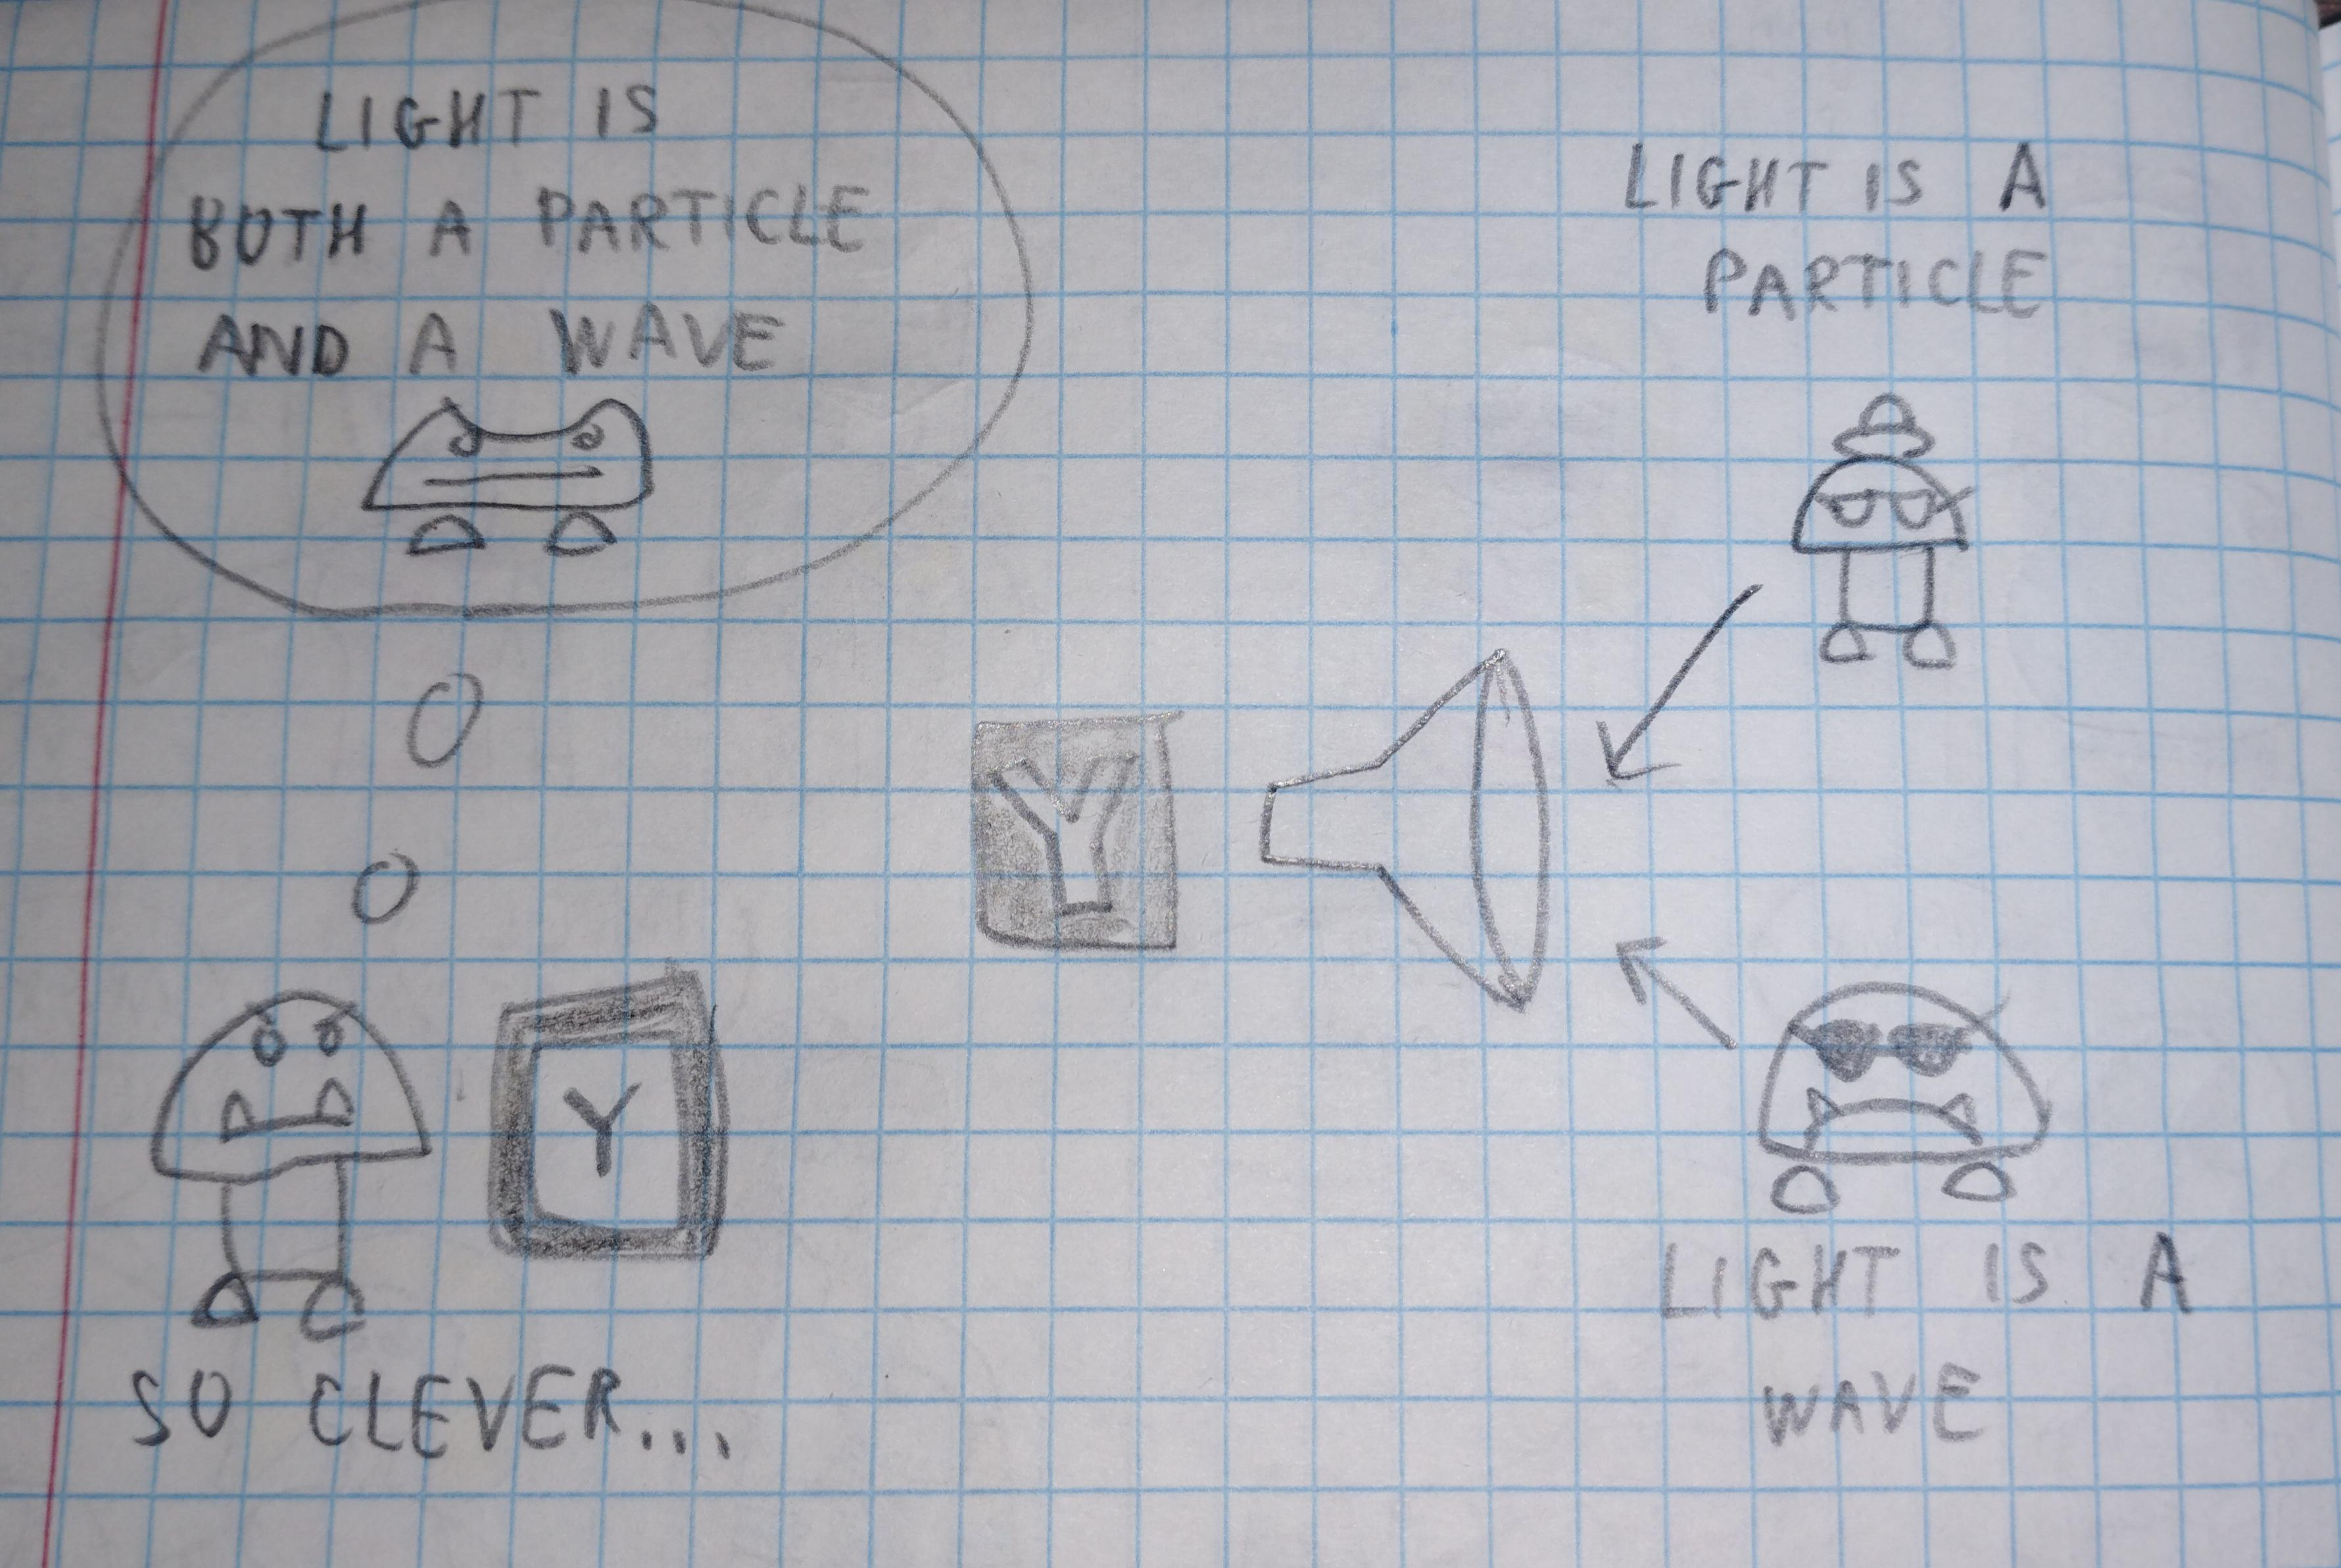 LIGHT IS
BOTH A PARTICLE
AND A WAVE
LIGHT IS A
PARTICLE
Y
Y
SO CLEVER...
LIGHT IS A
WAVE